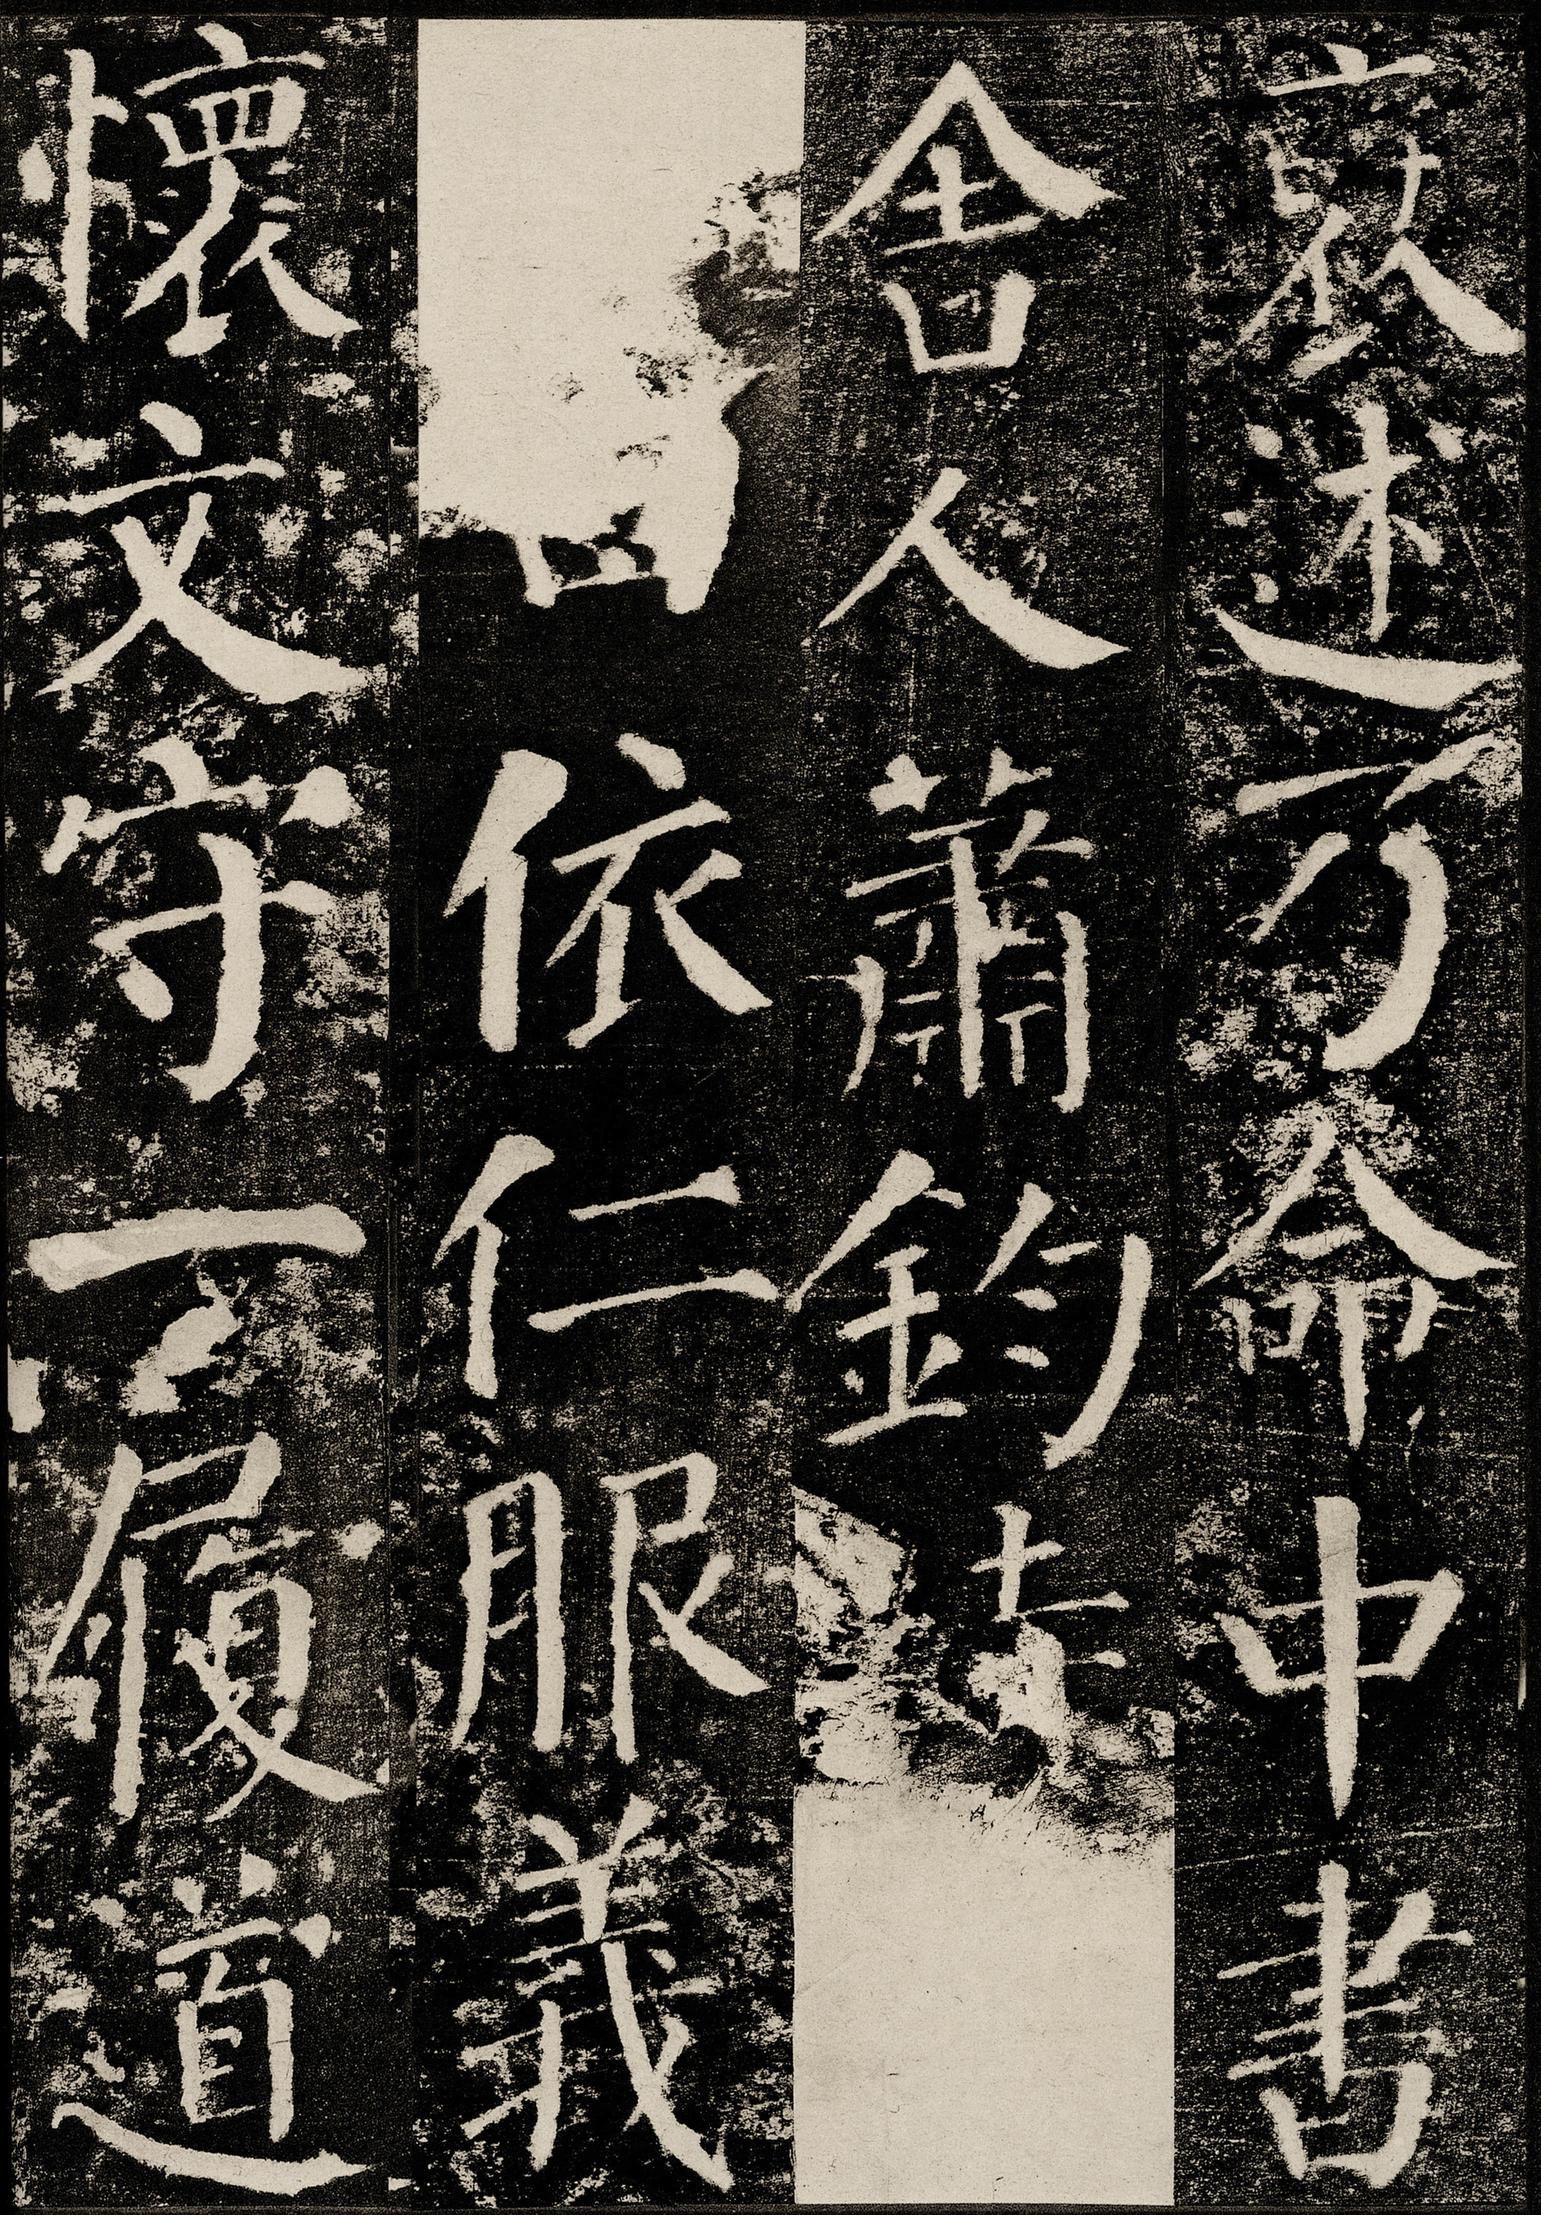 褒述乃命中書
舍人蕭鈞
依仁服義
懷文守一履道